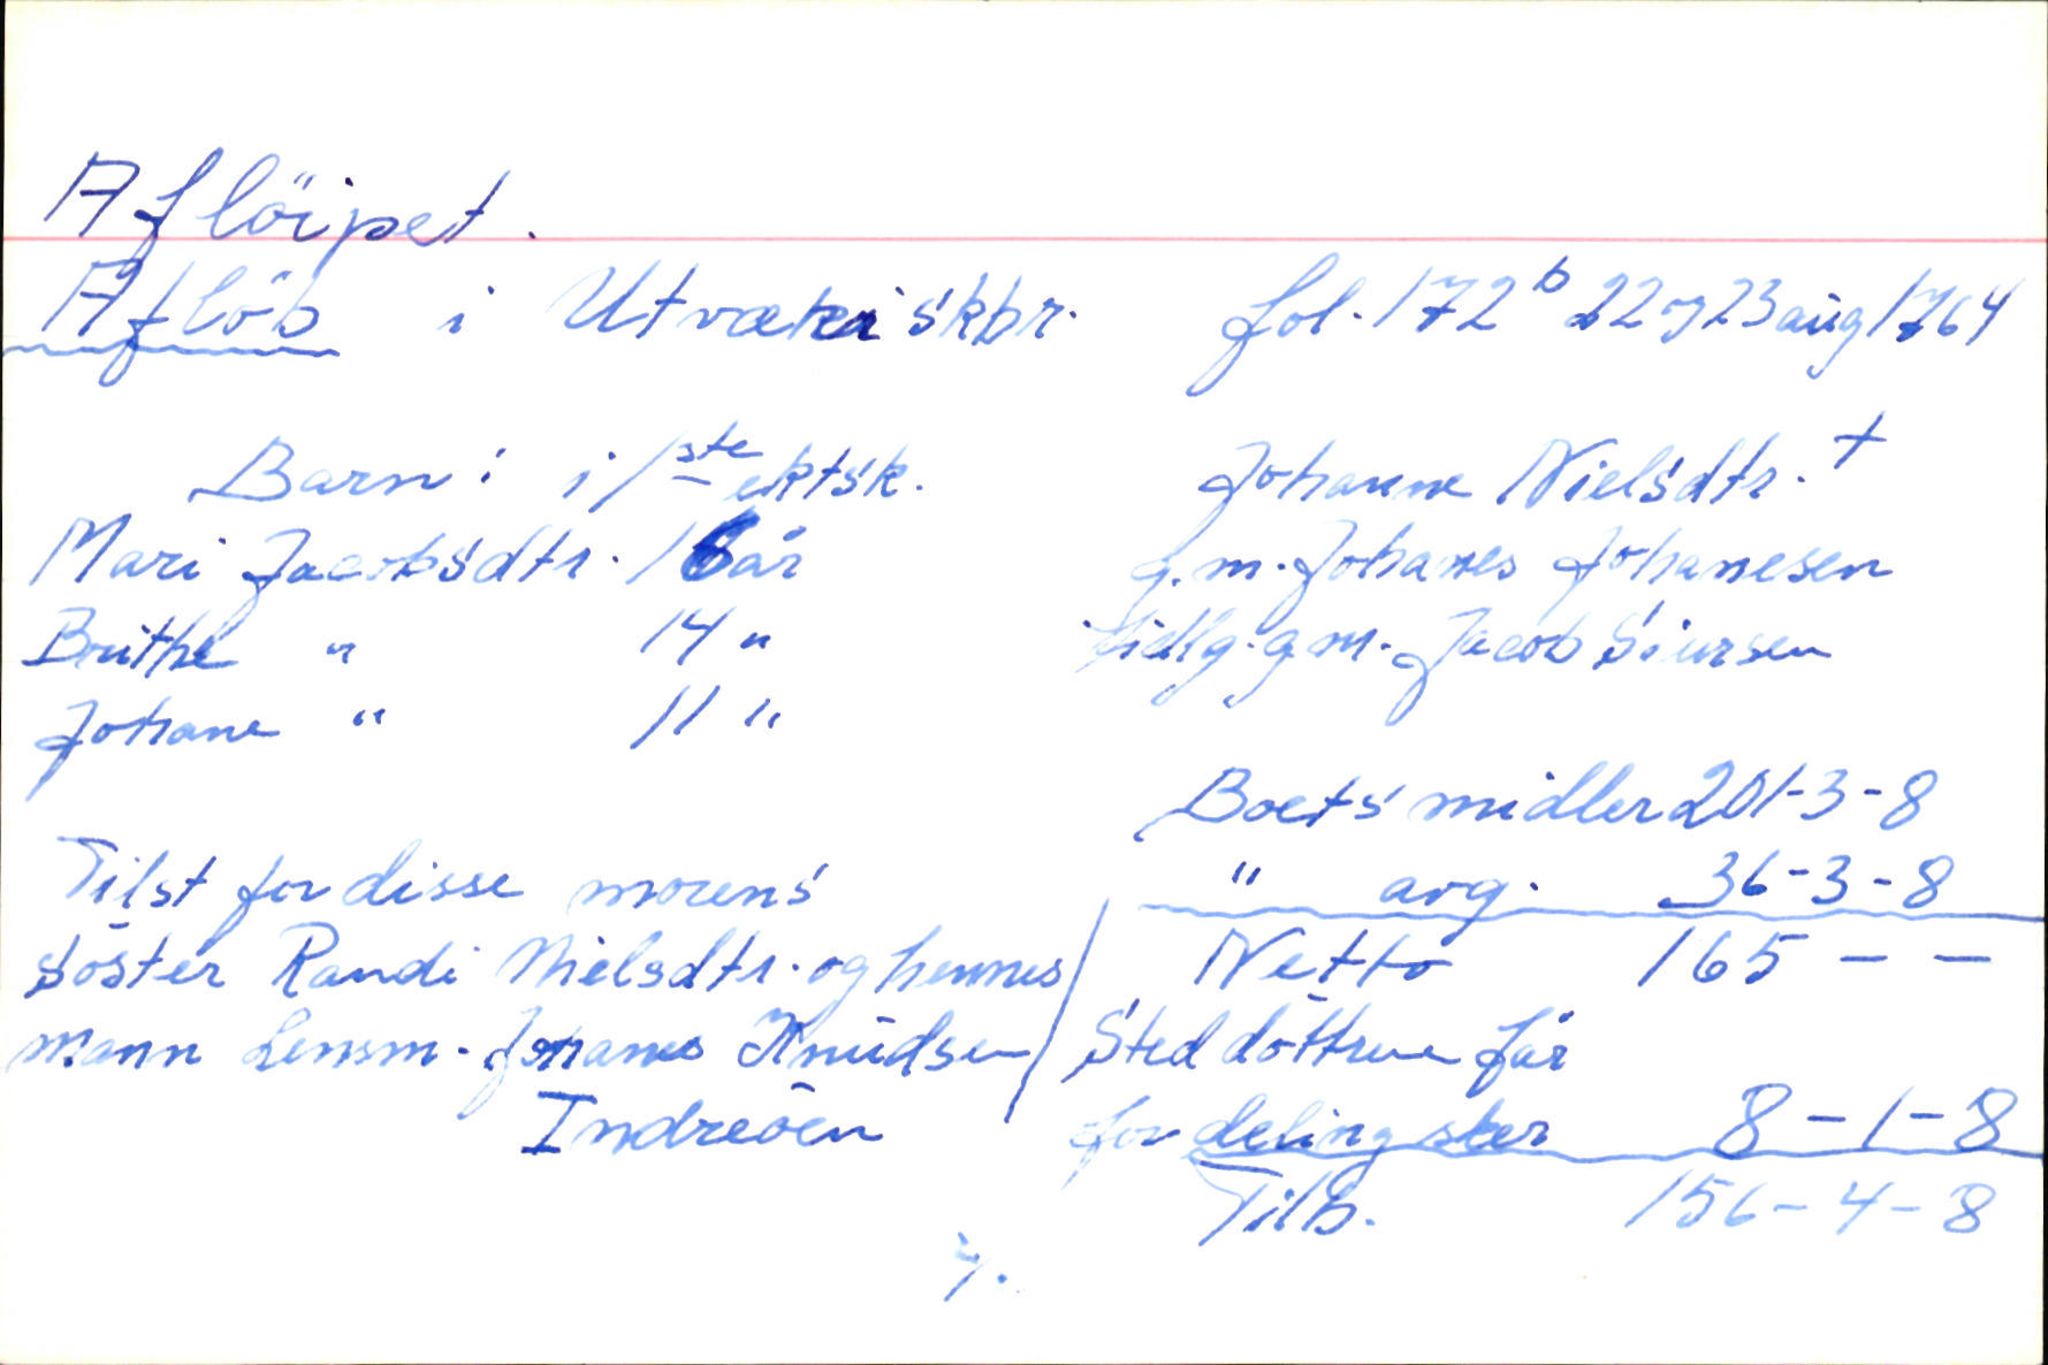 Aflöipet.
Aflöb i Utvæker skbr. fol. 172 b 22 og 23 aug 1764
Barn: i 1ste ektsk.
Mari Jacobsdtr. 16 år
Brithe " 14 "
Johane " 11 "
Johanne Nielsdtr. +
g.m. Johanes Johanesen
tidlg. g.m. Jacob Siursen
Boets midler 201-3-8
" avg. 36-3-8
Netto 165 - -
Sted döttrene får
for delingster 8-1-8
Tilb. 156-4-8
Tilst for disse morens
söster Randi Nielsdtr. og hennes
mann Lensm. Johanes Knudsen
Indreöen